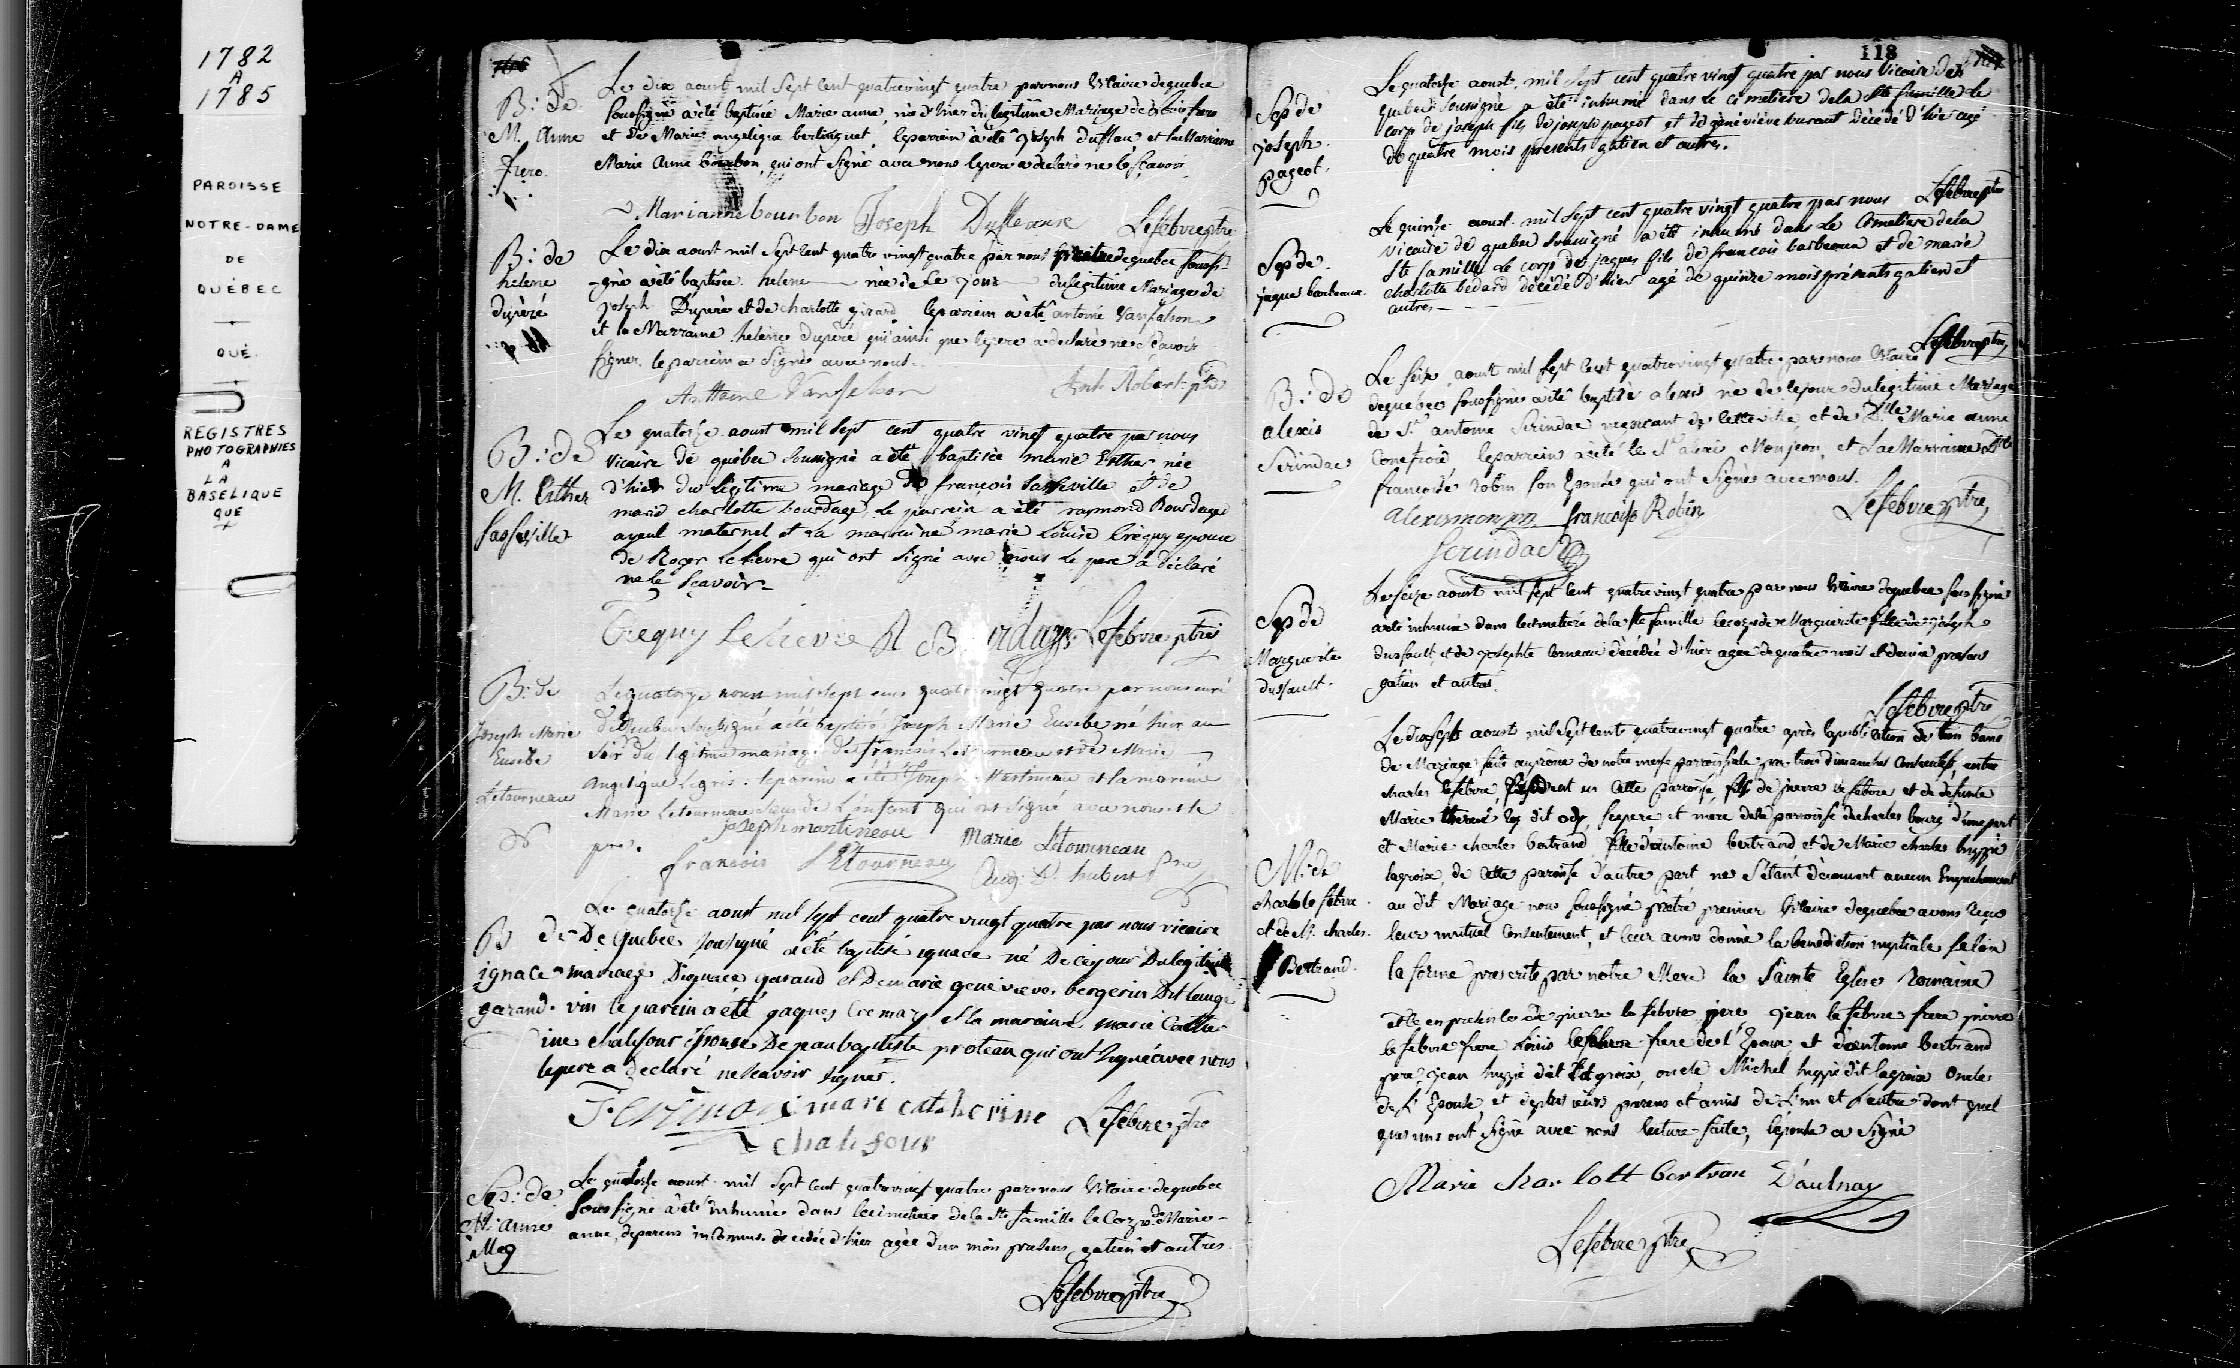 1782
A
1785
PAROISSE
NOTRE-DAME
DE
QUÉBEC
QUÉ.
REGISTRES
PHOTOGRAPHIES
A
LA
BASELIQUE
QUE
B: de
M. Anne
Le dix aoust mil Sept Cent quatrevingt quatre par nous Vicaire de quebec
soussigné a été baptisée Marie anne, née d'hier du legitime Mariage de
et de Marie angelique berlinguet, le parrain a été Joseph Dufleau, et la Marraine
Marie Anne bourbon, qui ont signé avec nous le pere a declaré ne le sçavoir
Marianne bourbon Joseph Lefebvre ptre
B: de
helene
dupéré
Le dix aoust mil Sept Cent quatre vingt quatre par nous de quebec souss-
-igné a été baptisée helene née de ce jour du legitime Mariage de
joseph Dupéré et de charlotte girard le parrain a été antoine Vanfelson
et la Marraine helene dupéré qui ainsi que le pere a declaré ne sçavoir
signer. le parrain a signé avec nous.
Anttoine Vanfelson
B: de
M. Esther
Sasseville
Le quatorze aoust mil sept cent quatre vingt quatre par nous
vicaire de québec soussigné a été baptisée marie Esther née
d'hier du légitime mariage de françois Sasseville et de
marie charlotte bourdage le parrein a été raymond Bourdage
ayeul maternel et la marreine marie Louise Créquy epouse
de Roger Lelievre qui ont signé avec nous le pere a déclaré
ne le sçavoir
Crequy Lelievre R Bourdages Lefebvre ptre
B: de
Joseph Marie
Eusebe
Letourneau
Le quatorze aoust mil sept cens quatre vingt quatre par nous curé
de Quebec soussigné a été baptisé Joseph Marie Eusebe né hier au
soir du legitime mariage de francois Letourneau et de Marie
angelique Legris. le parein a été Joseph Martineau et la mareine
Marie Letourneau soeur de L'enfant qui ont signé avec nous et le
pere.
joseph martineau marie Letourneau
francois Letourneau Aug. D. hubert
B de
ignace
garand
Le quatorze aoust mil sept cent quatre vingt quatre par nous vicaire
De Quebec soussigné a été baptisé ignace né De ce jour Du legitime
mariage D'ignace garand et De marie genevieve bergerin Dit lange
vin le parein a été jaques Cremazy et la mareine marie Cathe
rine chalifour épouse De jean baptiste proteau qui ont signé avec nous
le pere a declaré ne sçavoir signer.
mari catherine Lefebvre ptre
chalifour
Sep: de
M: anne
Le quatorze aoust mil Sept Cent quatrevingt quatre par nous Vicaire de quebec
Soussigné a été inhumée dans le cimetiere de la Ste famille le Corps de Marie
anne, de parens inconnus decedée d'hier agée d'un mois presens gatien et autres
Lefebvre ptre
118
Sep de
joseph
pageot.
Le quatorze aoust, mil sept cent quatre vingt quatre par nous Vicaire de
quebec soussigné a été inhumé dans le cimetiere de la Ste famille le
corp de joseph fils de joseph pageot et de géneviève durant decédé d'hier agé
de quatre mois presents gatien et autres.
Lefebvre ptre
Sep de
jaque barbeaux
Le quinze aoust mil sept cent quatre vingt quatre par nous
vicaire de quebec soussigné a été inhumé dans le Cimetiere de la
Ste famille le corp de jaques fils de francois barbeaux et de marie
charlotte bedard décédé d'hier agé de quinze mois présents gatien et
autres
Lefebvre ptre
B: de
alexis
Serindac
Le seize aoust mil sept Cent quatre vingt quatre par nous Vicaire
de quebec soussigné a été baptisé alexis né de ce jour du legitime Mariage
de Sr. antoine Serindac negociant de cette ville, et de Dlle Marie anne
Conefroid le parrein a été le Sr alexis Monjeon, et La Marraine Dlle
francoise robin son Epouse qui ont signés avec nous.
alexis monjon francoise Robin Lefebvre ptre
Serindac
Sep de
Marguerite
dussault.
Le seize aoust mil sept Cent quatrevingt quatre par nous Vicaire de quebec soussigné
a été inhumée dans le cimetiere de la Ste famille le corps de Marguerite fille de joseph
dussault, et de josephte Comeau decédée d'hier agée de quatre mois et demie presens
gatien et autres.
Lefebvre ptre
M: de
charle le febvre
et de M. charles
Bertrand.
Le dix sept aoust mil Sept Cent quatrevingt quatre après la publication de trois bans
de Mariage faite au prône de notre messe paroissiale par trois dimanches Consecutifs, entre
charles lefebvre resident en Cette paroisse, fils de pierre lefebvre et de defunte
Marie dit ody, ses pere et mere de la paroisse de charles bourg d'une part
et Marie charles bertrand fille d'antoine bertrand et de Marie charles huppé
lagroix, de Cette paroisse d'autre part ne s'étant découvert aucun Empechement
au dit Mariage nous soussigné prêtre premier Vicaire de quebec avons reçu
leur mutuel Consentement, et leur avons donné la benediction nuptiale selon
la forme prescrite par notre Mere la Sainte Eglise Romaine
et ce en presence de pierre le febvre pere, jean le febvre frere pierre
lefebvre frere Louis lefebvre frere de l'Epoux et d'antoine Bertrand
pere, jean huppé dit lagroix, oncle Michel huppé dit lagroix oncle
de l'Epouse, et de plusieurs parens et amis de l'un et l'autre dont quel
ques uns ont signé avec nous lecture faite, l'epouse a signé
Marie charlott bertran D'aulnay
Lefebvre ptre